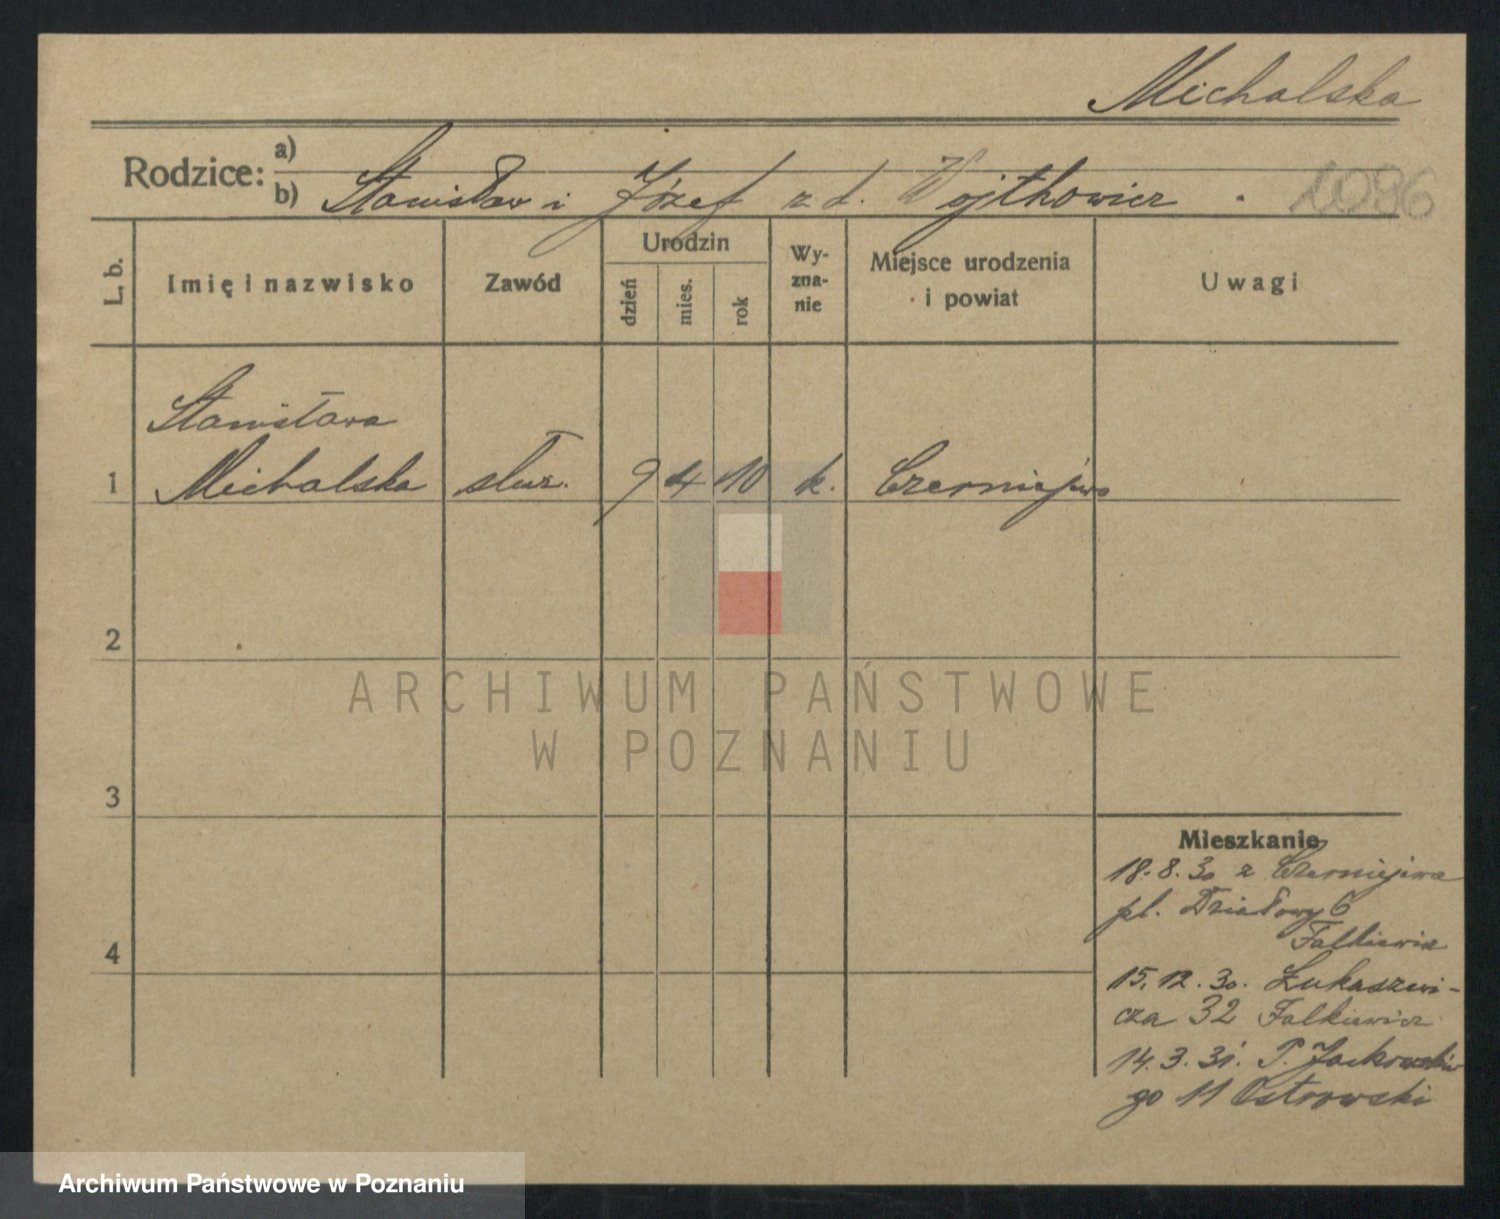 Michalska
Rodzice: a)
b) Stanisław i Józef z d. Wojtkowicz. 1096
L. b.
Imię i nazwisko
Zawód
Urodzin
dzień
mies.
rok
Wy-
zna-
nie
Miejsce urodzenia
i powiat
Uwagi
Stanisława
1 Michalska służ. 9 4 10 k. Czerniejewo
2
ARCHIWUM PAŃSTWOWE
W POZNANIU
3
Mieszkanie
18.8.30 z Czerniejewa
pl. Działowy 6
Falkiewicz
4
15.12.30. Łukaszewi-
cza 32 Falkiewicz
14.3.31. P. Jackowskie
go 11 Ostrowski
Archiwum Państwowe w Poznaniu